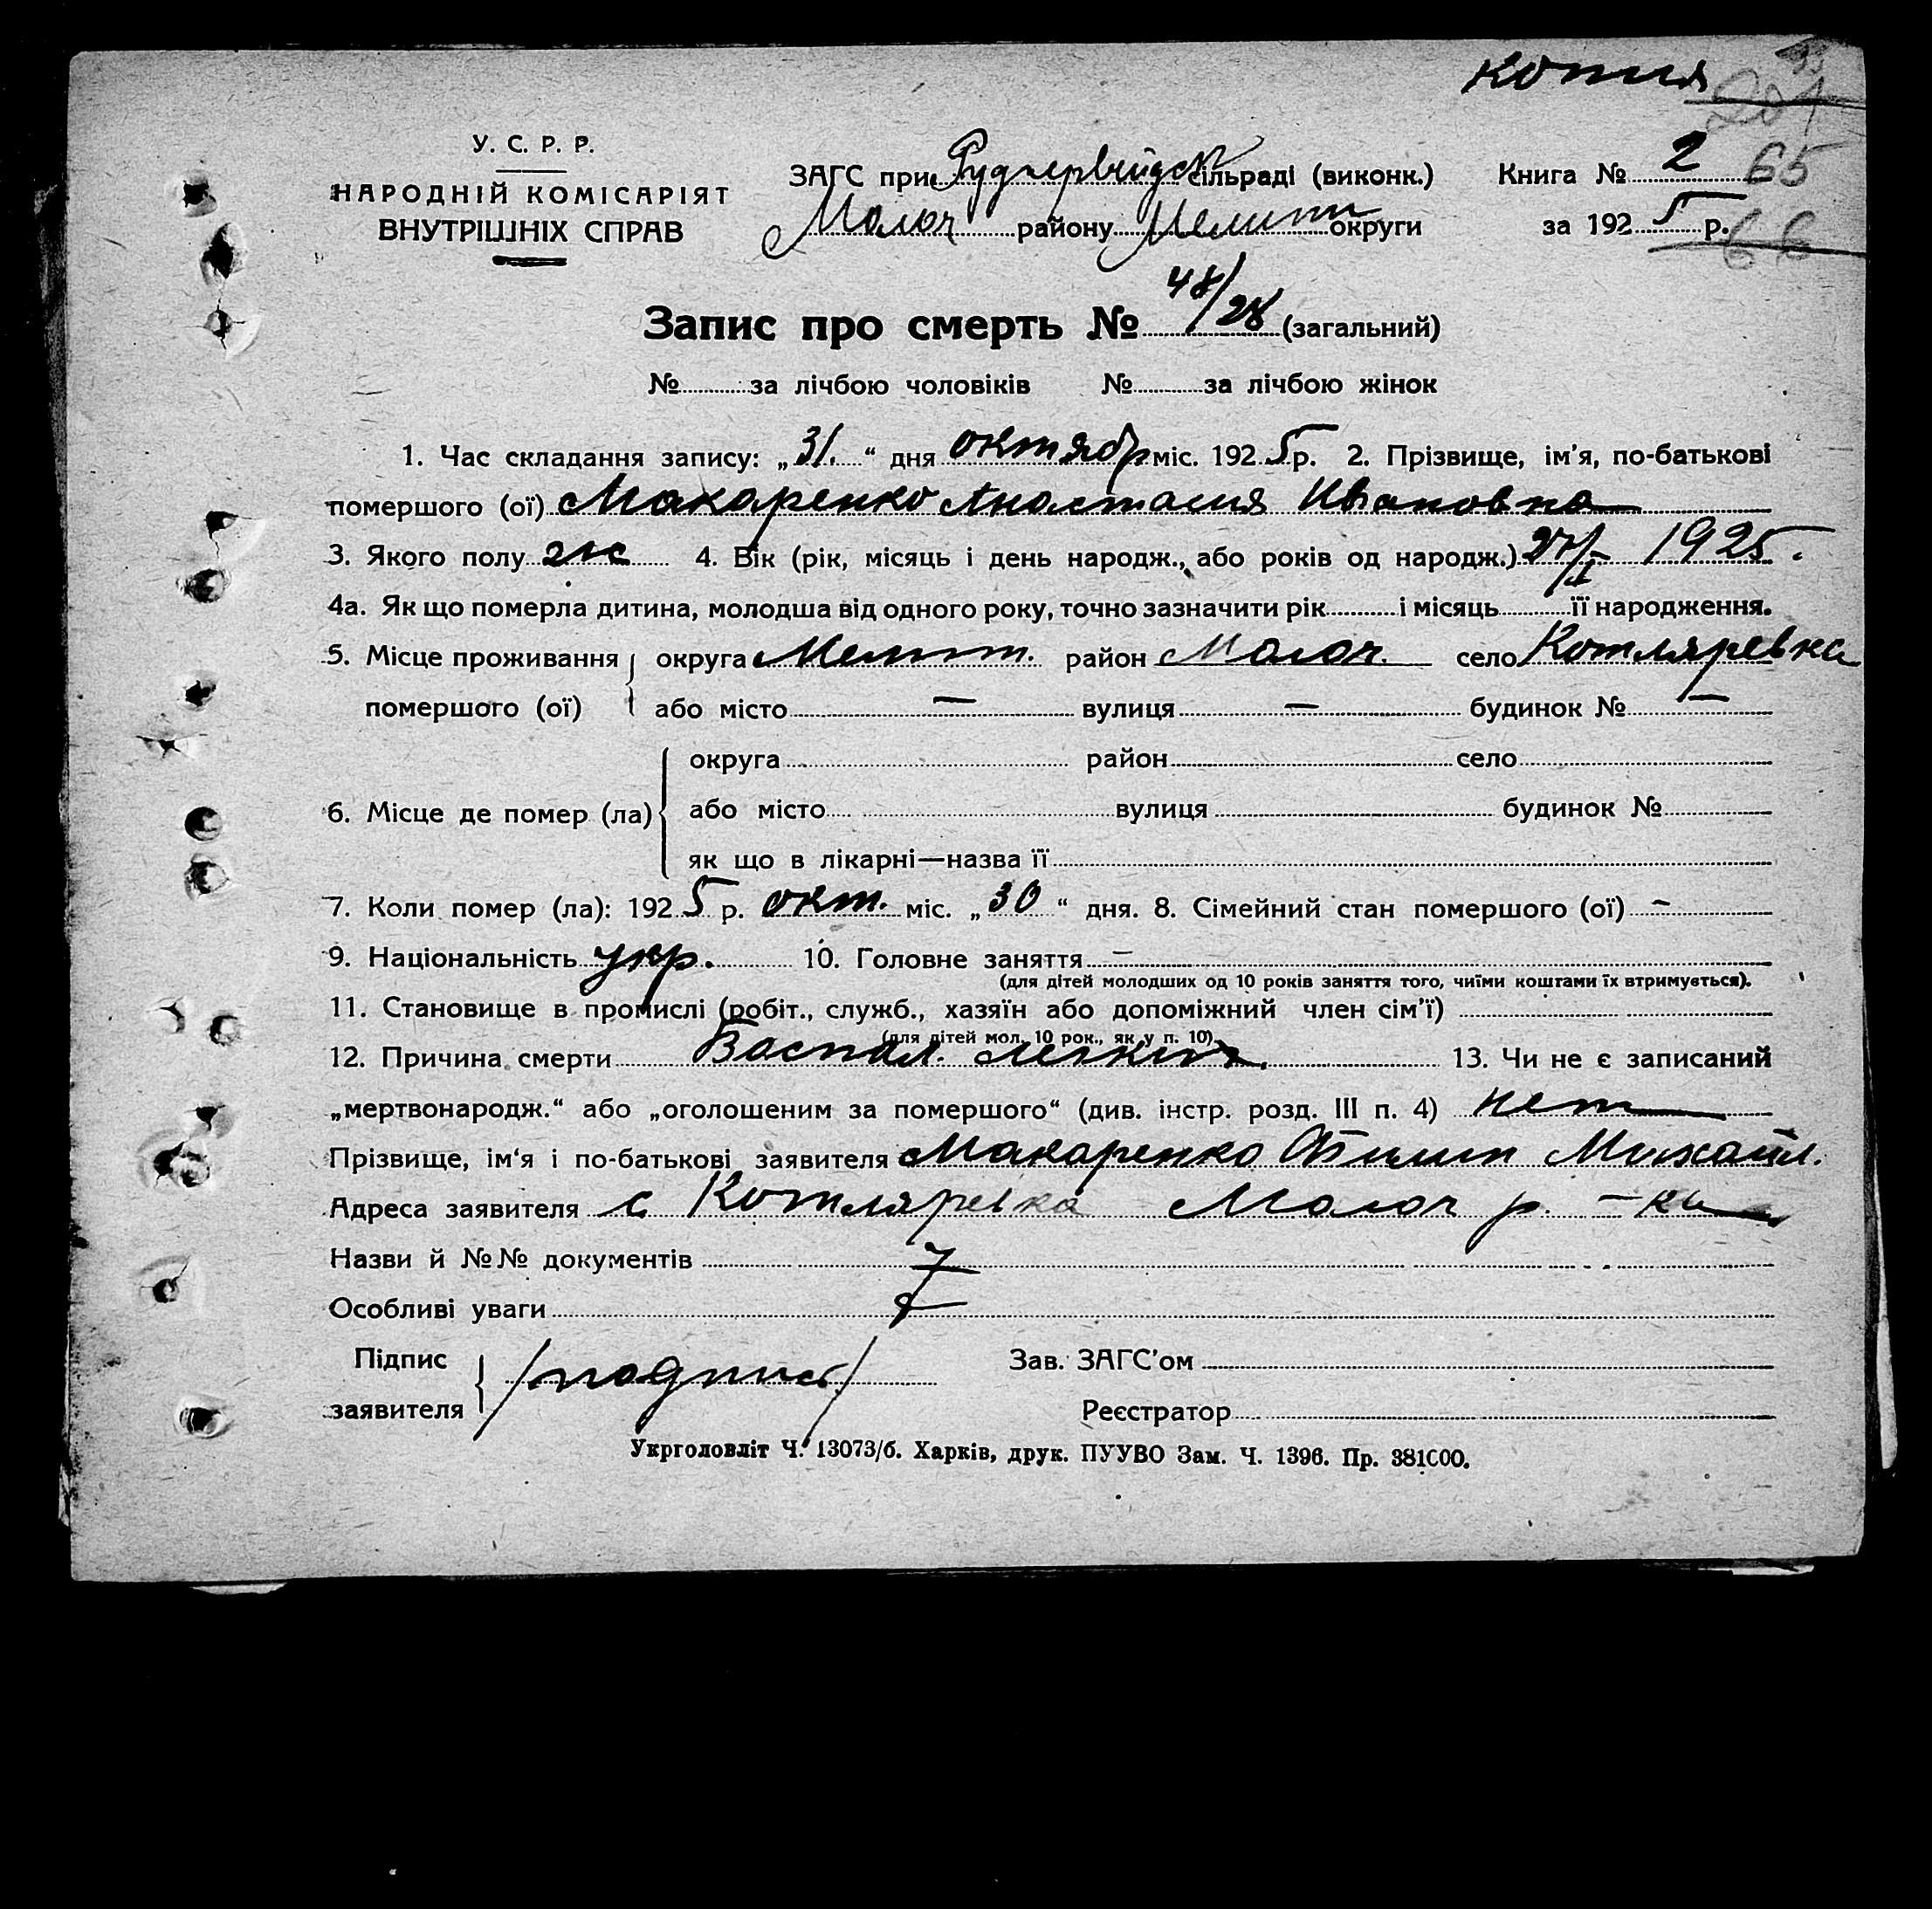 копия
201
У. С. Р. Р.
НАРОДНІЙ КОМІСАРІЯТ
ВНУТРІШНІХ СПРАВ
ЗАГС при сільраді (виконк.)
Молоч району Мелит округи
Книга № 2 65
за 1925 р. 66
Запис про смерть № 48/28 (загальний)
№ за лічбою чоловіків № за лічбою жінок
1. Час складання запису: „31.“ дня октябр міс. 1925 р. 2. Прізвище, ім'я, по-батькові
помершого (ої) Макаренко Анастасия Ивановна
3. Якого полу ж 4. Вік (рік, місяць і день народж., або років од народж.) 27/I 1925.
4а. Як що померла дитина, молодша від одного року, точно зазначити рік і місяць її народження.
5. Місце проживання округа Мелит. район Молоч. село Котляревка
помершого (ої) або місто — вулиця — будинок № —
округа район село
6. Місце де помер (ла) або місто вулиця будинок №
як що в лікарні—назва її
7. Коли помер (ла): 1925 р. окт. міс. „30“ дня. 8. Сімейний стан помершого (ої) -
9. Національність укр. 10. Головне заняття —
(для дітей молодших од 10 років заняття того, чиїми коштами їх втримується).
11. Становище в промислі (робіт., служб., хазяїн або допоміжний член сім'ї)
(для дітей мол. 10 рок., як у п. 10)
12. Причина смерти Воспал. легких. 13. Чи не є записаний
„мертвонародж.“ або „оголошеним за помершого“ (див. інстр. розд. III п. 4) нет
Прізвище, ім'я і по-батькові заявителя Макаренко Филип Михайл.
Адреса заявителя с Котляревка Молоч р. -ка
Назви й №№ документів
Особливі уваги
Підпис
заявителя /подпись/
Зав. ЗАГС'ом
Реєстратор
Укрголовліт Ч. 13073/б. Харків, друк. ПУУВО Зам. Ч. 1396. Пр. 381000.